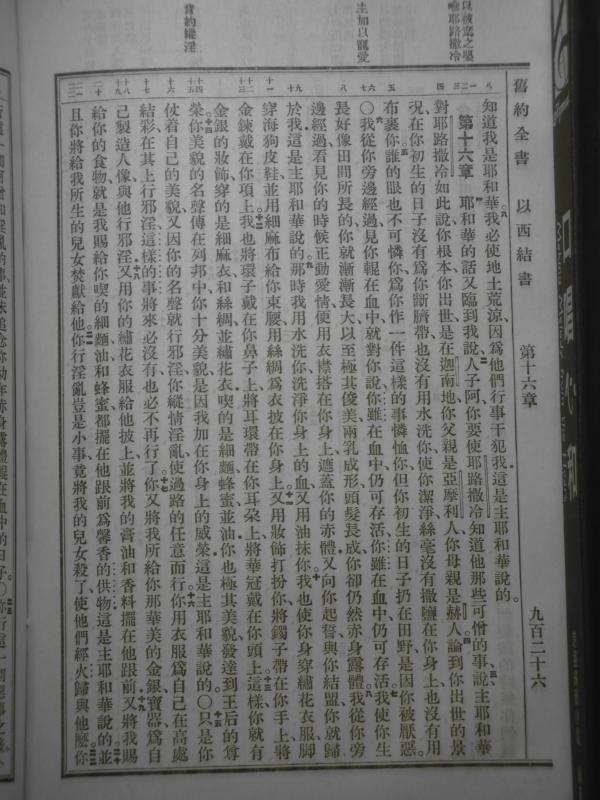 以被棄之嬰
喻耶路撒冷
主加以寵愛
背約縱淫
舊約全書　以西結書　第十六章　九百二十六
知道我是耶和華、我必使地土荒涼、因爲他們行事干犯我、這是主耶和華說的。
第十六章　耶和華的話又臨到我說、人子阿、你要使耶路撒冷知道他那些可憎的事、說主耶和華
對耶路撒冷如此說、你根本、你出世、是在迦南地、你父親是亞摩利人、你母親是赫人、論到你出世的景
況、在你初生的日子沒有爲你斷臍帶、也沒有用水洗你、使你潔淨、絲毫沒有撒鹽在你身上、也沒有用
布裹你、誰的眼也不可憐你、爲你作一件這樣的事憐恤你、但你初生的日子扔在田野、是因你被厭惡。
○我從你旁邊經過、見你輥在血中、就對你說、你雖在血中、仍可存活、你雖在血中、仍可存活、我使你生
長好像田間所長的、你就漸漸長大、以至極其俊美、兩乳成形、頭髮長成、你卻仍然赤身露體、我從你旁
邊經過、看見你的時候正動愛情、便用衣襟搭在你身上、遮蓋你的赤體、又向你起誓、與你結盟、你就歸
於我、這是主耶和華說的、那時我用水洗你、洗淨你身上的血、又用油抹你、我也使你身穿繡花衣服、腳
穿海狗皮鞋、並用細麻布給你束腰、用絲綢爲衣披在你身上、又用妝飾打扮你、將鐲子帶在你手上、將
金鍊戴在你項上、我也將環子戴在你鼻子上、將耳環帶在你耳朶上、將華冠戴在你頭上、這樣你就有
金銀的妝飾、穿的是細麻衣、和絲綢、並繡花衣、喫的是細麵、蜂蜜、並油、你也極其美貌、發達到王后的尊
榮、你美貌的名聲傳在列邦中、你十分美貌、是因我加在你身上的威榮、這是主耶和華說的。○只是你
仗着自己的美貌、又因你的名聲、就行邪淫、你縱情淫亂、使過路的任意而行、你用衣服爲自己在高處
結彩、在其上行邪淫、這樣的事將來必沒有、也必不再行了、你又將我所給你那華美的金銀寶器、爲自
己製造人像、與他行邪淫、又用你的繡花衣服給他披上、並將我的膏油和香料擺在他跟前、又將我賜
給你的食物、就是我賜給你喫的細麵、油、和蜂蜜、都擺在他跟前爲馨香的供物、這是主耶和華說的、並
且你將給我所生的兒女焚獻給他、你行淫亂豈是小事、竟將我的兒女殺了、使他們經火歸與他麼、你